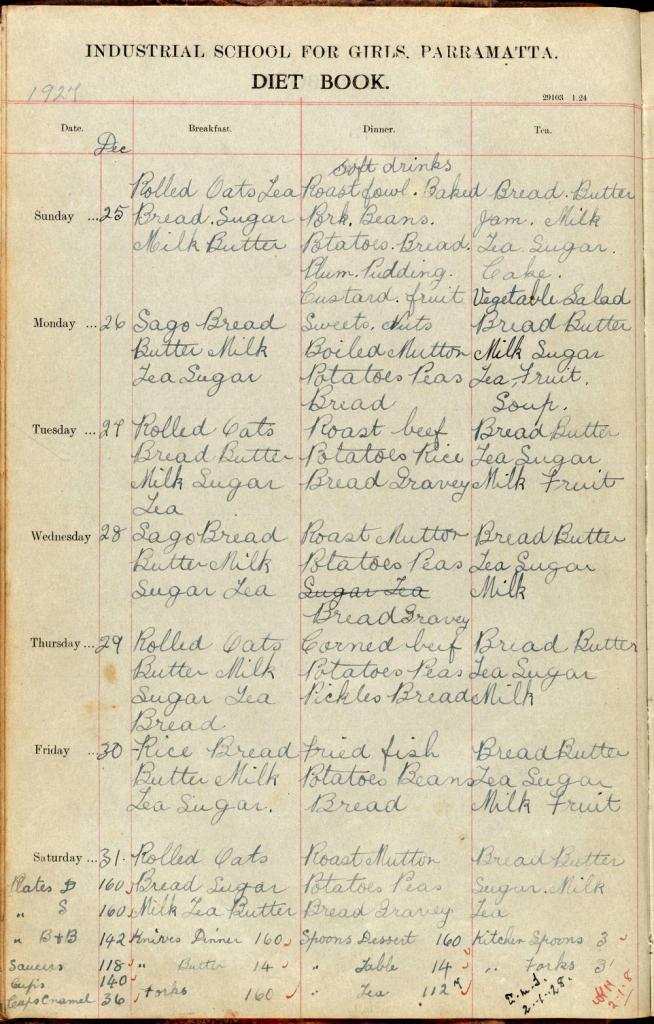 INDUSTRIAL SCHOOL FOR GIRLS, PARRAMATTA.
DIET BOOK.
1927
29103 1.24
Date. Breakfast. Dinner. Tea.
Dec
soft drinks
Rolled Oats Tea Roast fowl. Baked Bread. Butter
Sunday ... 25 Bread. Sugar Pork. Beans. Jam. Milk
Milk Butter Potatoes. Bread. Tea. Sugar.
Plum. Pudding. Cake.
Custard. fruit Vegetable Salad
Monday ... 26 Sago Bread Sweets. Nuts Bread Butter
Butter Milk Boiled Mutton Milk Sugar
Tea Sugar Potatoes Peas Tea. Fruit.
Bread Soup.
Tuesday ... 27 Rolled Oats Roast beef Bread Butter
Bread Butter Potatoes Rice Tea Sugar
Milk Sugar Bread Gravey Milk Fruit
Tea
Wednesday 28 Sago Bread Roast Mutton Bread Butter
Butter Milk Potatoes Peas Tea Sugar
Sugar Tea Sugar Tea Milk
Bread Gravey
Thursday ... 29 Rolled Oats Corned beef Bread Butter
Butter Milk Potatoes Peas Tea Sugar
Sugar Tea Pickles Bread Milk
Bread
Friday ... 30 Rice Bread Fried fish Bread Butter
Butter Milk Potatoes Beans Tea Sugar
Tea Sugar. Bread Milk Fruit
Saturday ... 31. Rolled Oats Roast Mutton Bread Butter
Plates D 160 Bread Sugar Potatoes Peas Sugar. Milk
" S 160 Milk Tea Butter Bread Gravey Tea
" B+B 142 Knives Dinner 160 Spoons Dessert 160 Kitchen Spoons 3
Saucers 118 " Butter 14 " Table 14 " Forks 3
Cups 140
Cups Enamel 36 Forks 160 " Tea 112
2-1-28.
2-1-8